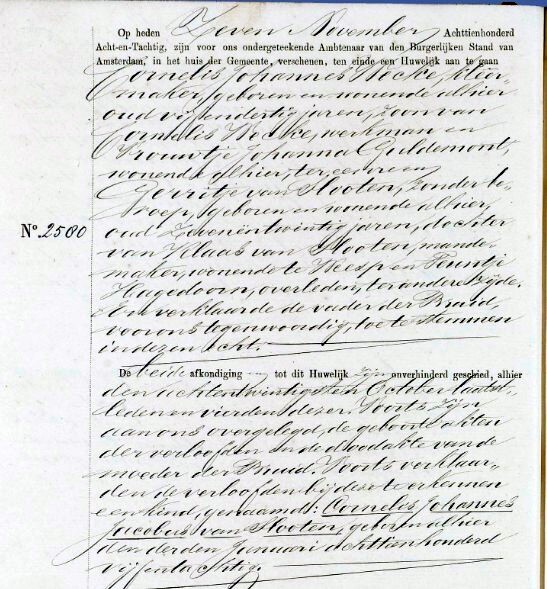 Op heden Zeven November Achttienhonderd
Acht-en-Tachtig, zijn voor ons ondergeteekende Ambtenaar van den Burgerlijken Stand van
Amsterdam, in het huis der Gemeente, verschenen, ten einde een Huwelijk aan te gaan
Cornelis Johannes Kocke, kleer-
maker, geboren en wonende alhier
oud vijfendertig jaren, zoon van
Cornelis Kocke, werkman en
Vrouwtje Johanna Guldemont,
wonende alhier, ter eenre en
Gerritje van Slooten, zonder be-
roep, geboren en wonende alhier,
No. 2580
oud zevenentwintig jaren, dochter
van Klaas van Slooten, mande-
maker, wonende te Weesp en Teuntje
Hagedoorn, overleden, ter andere zijde.
En verklaarde de vader der Bruid,
voor ons tegenwoordig, toe te stemmen
in dezen Echt.
De beide afkondiging tot dit Huwelijk zijn onverhinderd geschied, alhier
den achtentwintigsten October laatst-
leden en vierden dezer. Voorts zijn
aan ons overgelegd, de geboorteakten
der verloofden en de doodakte van de
moeder der Bruid. Voorts verklaar-
den de verloofden bij deze te erkennen
een kind, genaamd: Cornelis Johannes
Jacobus van Slooten, geboren alhier
den derden Januari achttienhonderd
vijfentachtig.